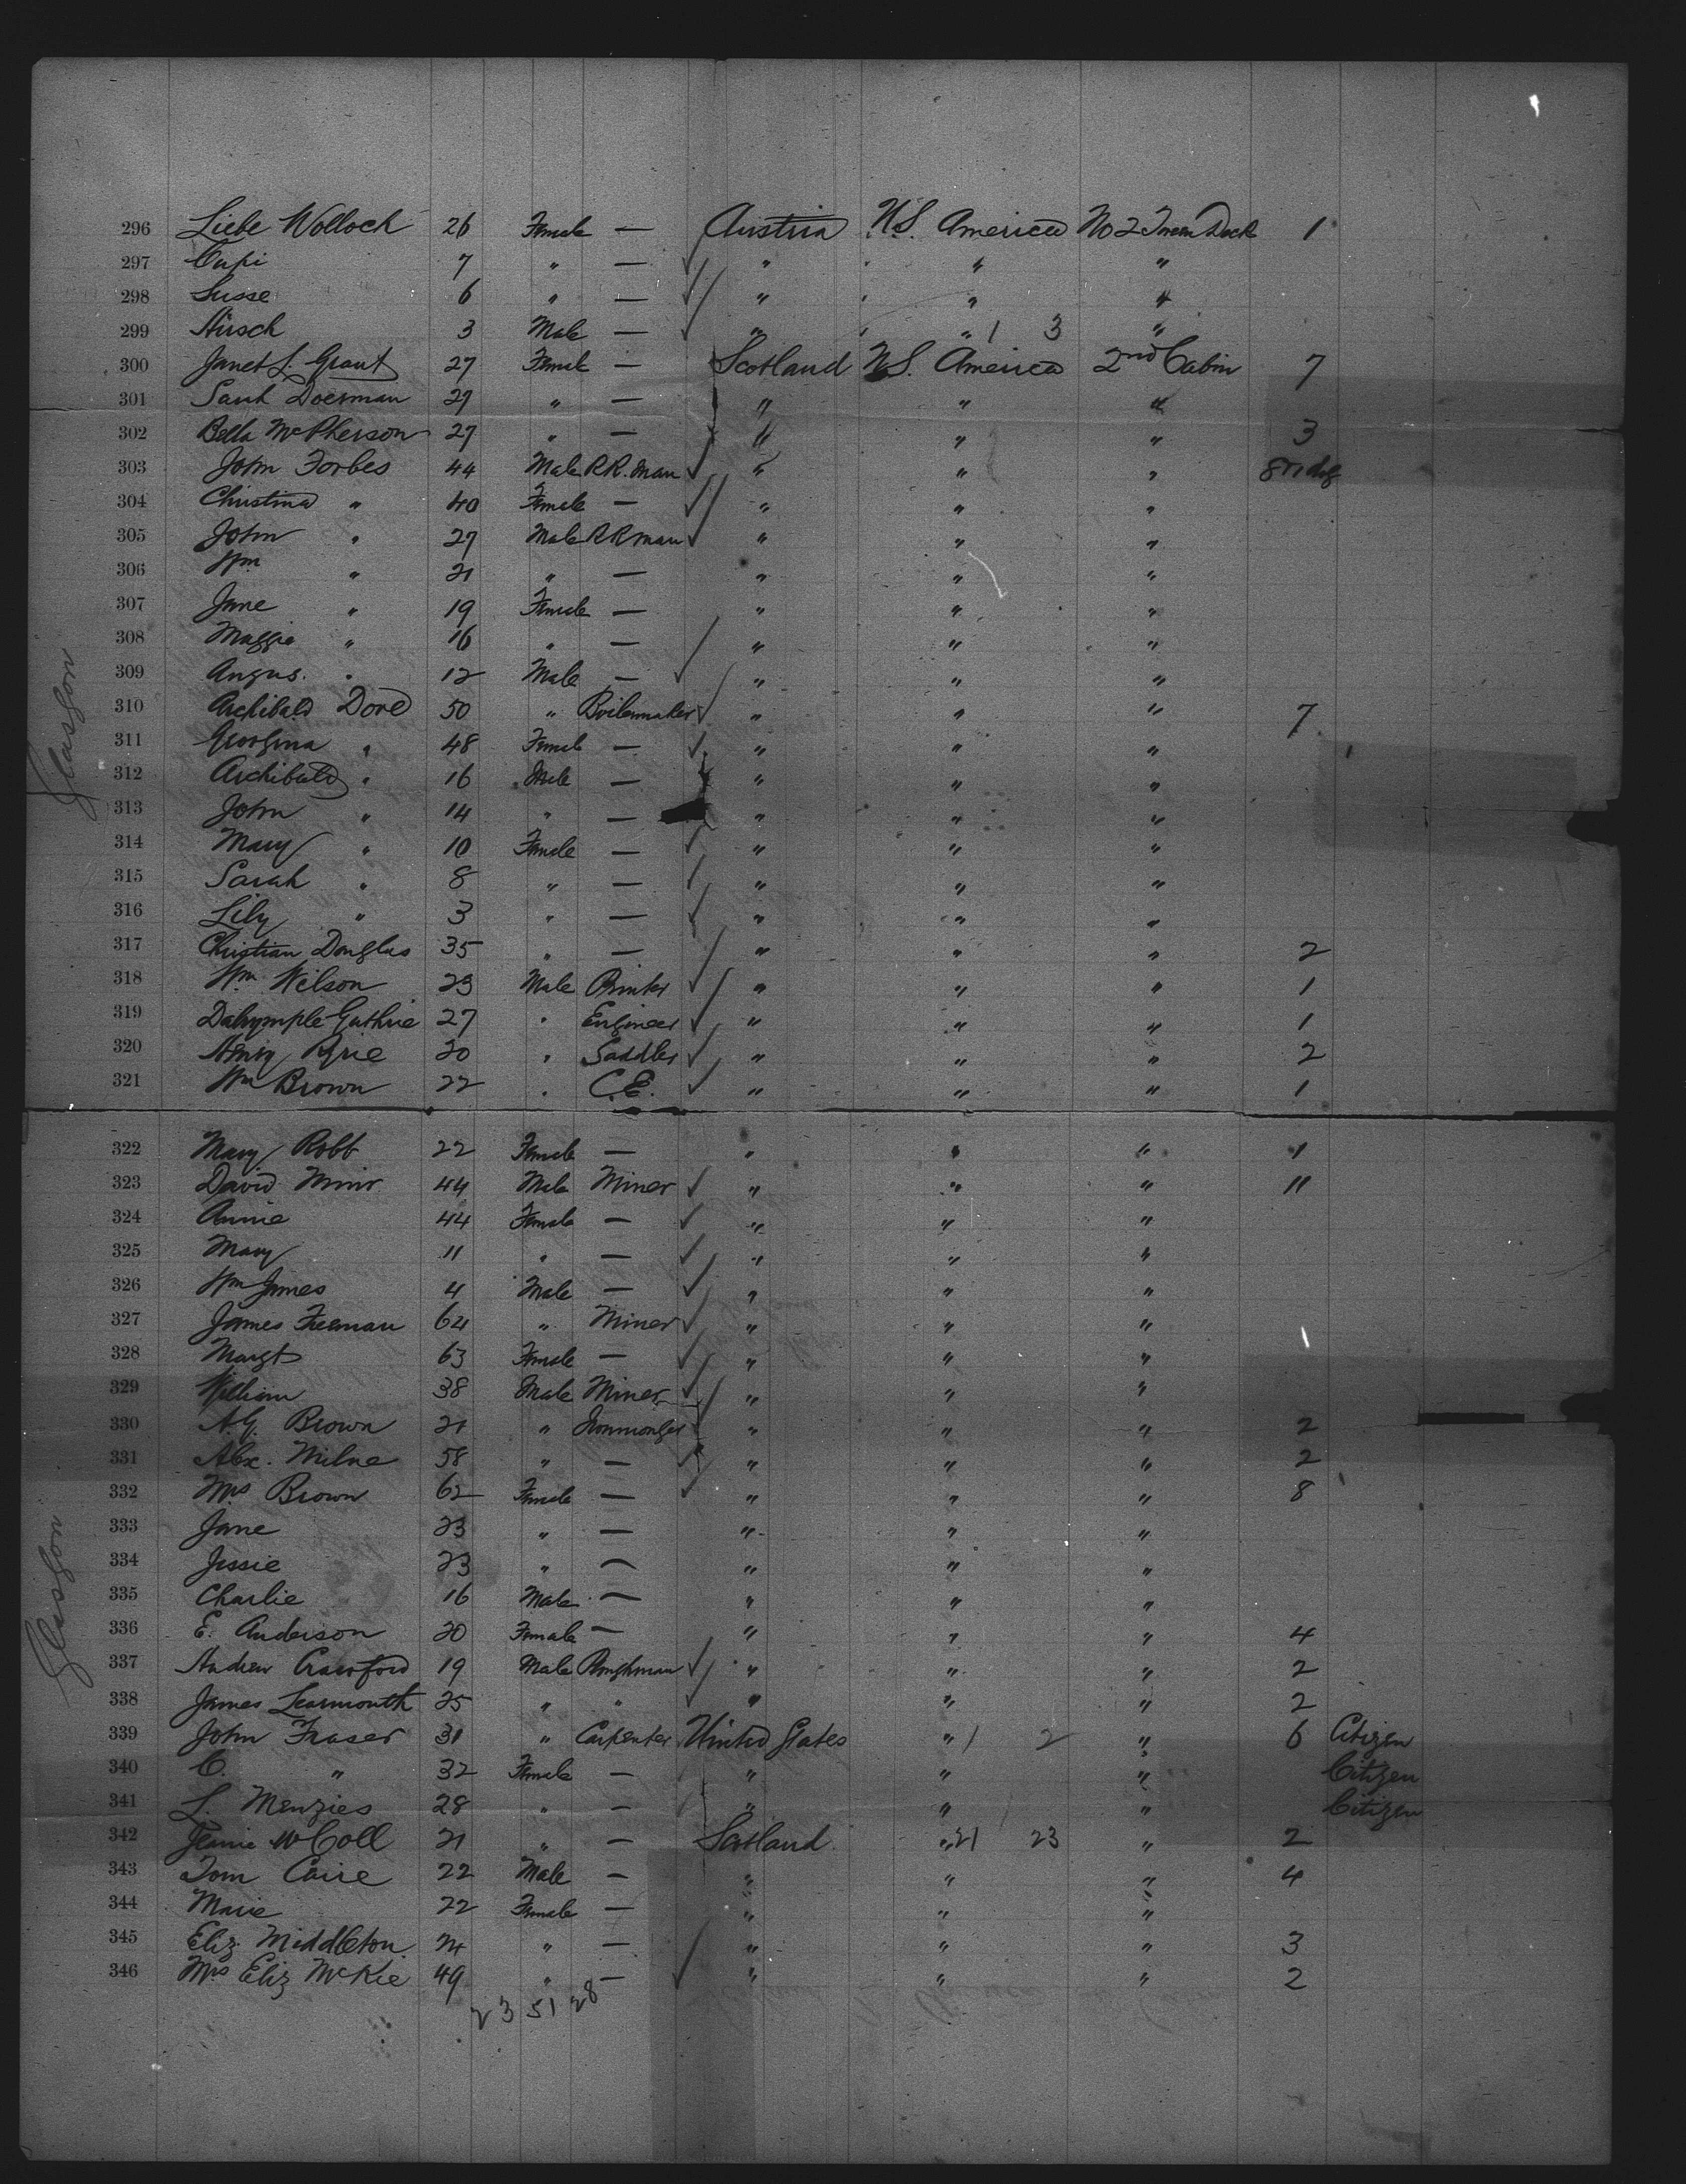 296 Liebe Wolloch 26 Female — Austria U.S. America No 2 Tween Deck 1
297 Cupi 7 " — " " "
298 Susse 6 " — " " "
299 Hirsch 3 Male — " " 1 3 "
300 Janet L. Grant 27 Female — Scotland U.S. America 2nd Cabin 7
301 Sarah Doerman 29 " — " " "
302 Bella McPherson 27 " — " " " 3
303 John Forbes 44 Male R.R. Man " " " 8
304 Christina " 40 Female — " " "
305 John " 27 Male RR man " " "
306 Wm " 21 " — " " "
307 Jane " 19 Female — " " "
308 Maggie " 16 " — " " "
309 Angus. " 12 Male — " " "
310 Archibald Dove 50 " Boilermaker " " " 7
311 Georgina " 48 Female — " " "
312 Archibald " 16 Male — " " "
313 John " 14 " — " " "
314 Mary " 10 Female — " " "
315 Sarah " 8 " — " " "
316 Lily " 3 " — " " "
317 Christian Douglas 35 " — " " " 2
318 Wm Wilson 23 Male Printer " " " 1
319 Dalrymple Guthrie 27 " Engineer " " " 1
320 Henry Pyrie 20 " Saddler " " " 2
321 Wm Brown 22 " C.E. " " " 1
322 Mary Robb 22 Female — " " " 1
323 David Minir 44 Male Miner " " " 11
324 Annie 44 Female — " " "
325 Mary 11 " — " " "
326 Wm James 4 Male — " " "
327 James Freeman 64 " Miner " " "
328 Margt 63 Female — " " "
329 William 38 Male Miner " " "
330 A.G. Brown 21 " Ironmonger " " " 2
331 Alex. Milne 58 " — " " " 2
332 Mrs Brown 62 Female — " " " 8
333 Jane 23 " — " " "
334 Jessie 23 " — " " "
335 Charlie 16 Male — " " "
336 E. Anderson 20 Female — " " " 4
337 Andrew Crawford 19 Male Ploughman " " " 2
338 James Learmouth 25 " " " " " 2
339 John Fraser 31 " Carpenter United States " 1 2 " 6 Citizen
340 C. " 32 Female — " " " Citizen
341 L. Menzies 28 " — " " " Citizen
342 Jeanie McColl 21 " — Scotland " 21 23 " 2
343 Tom Caire 22 Male — " " " 4
344 Marie 22 Female — " " "
345 Eliz Middleton 24 " — " " " 3
346 Mrs Eliz McKie 49 " — " " " 2
23 51 28
Glasgow
Glasgow